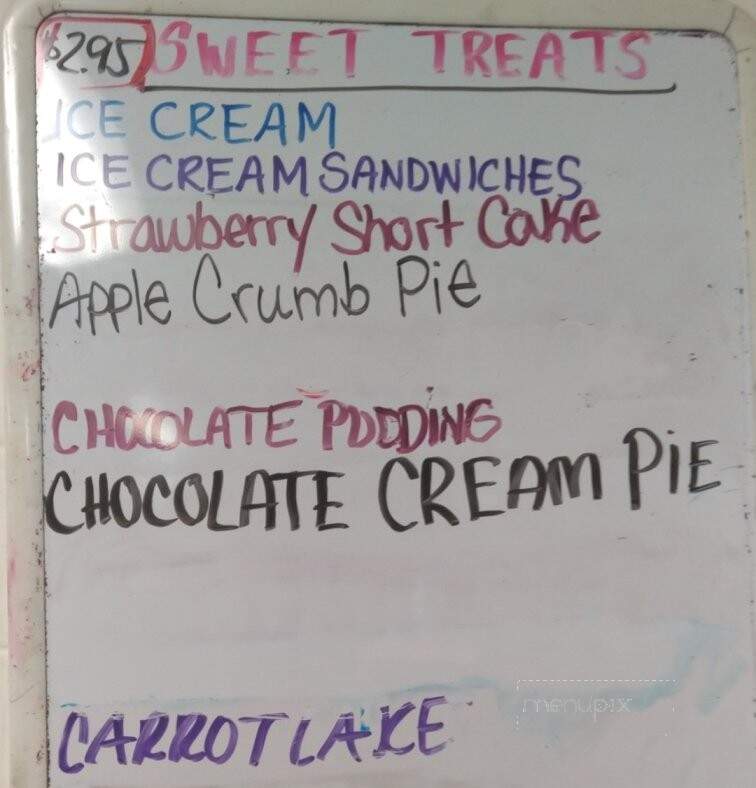 $2.95 SWEET TREATS
ICE CREAM
ICE CREAM SANDWICHES
Strawberry Short Cake
Apple Crumb Pie
CHOCOLATE PUDDING
CHOCOLATE CREAM PIE
menupix
CARROT CAKE